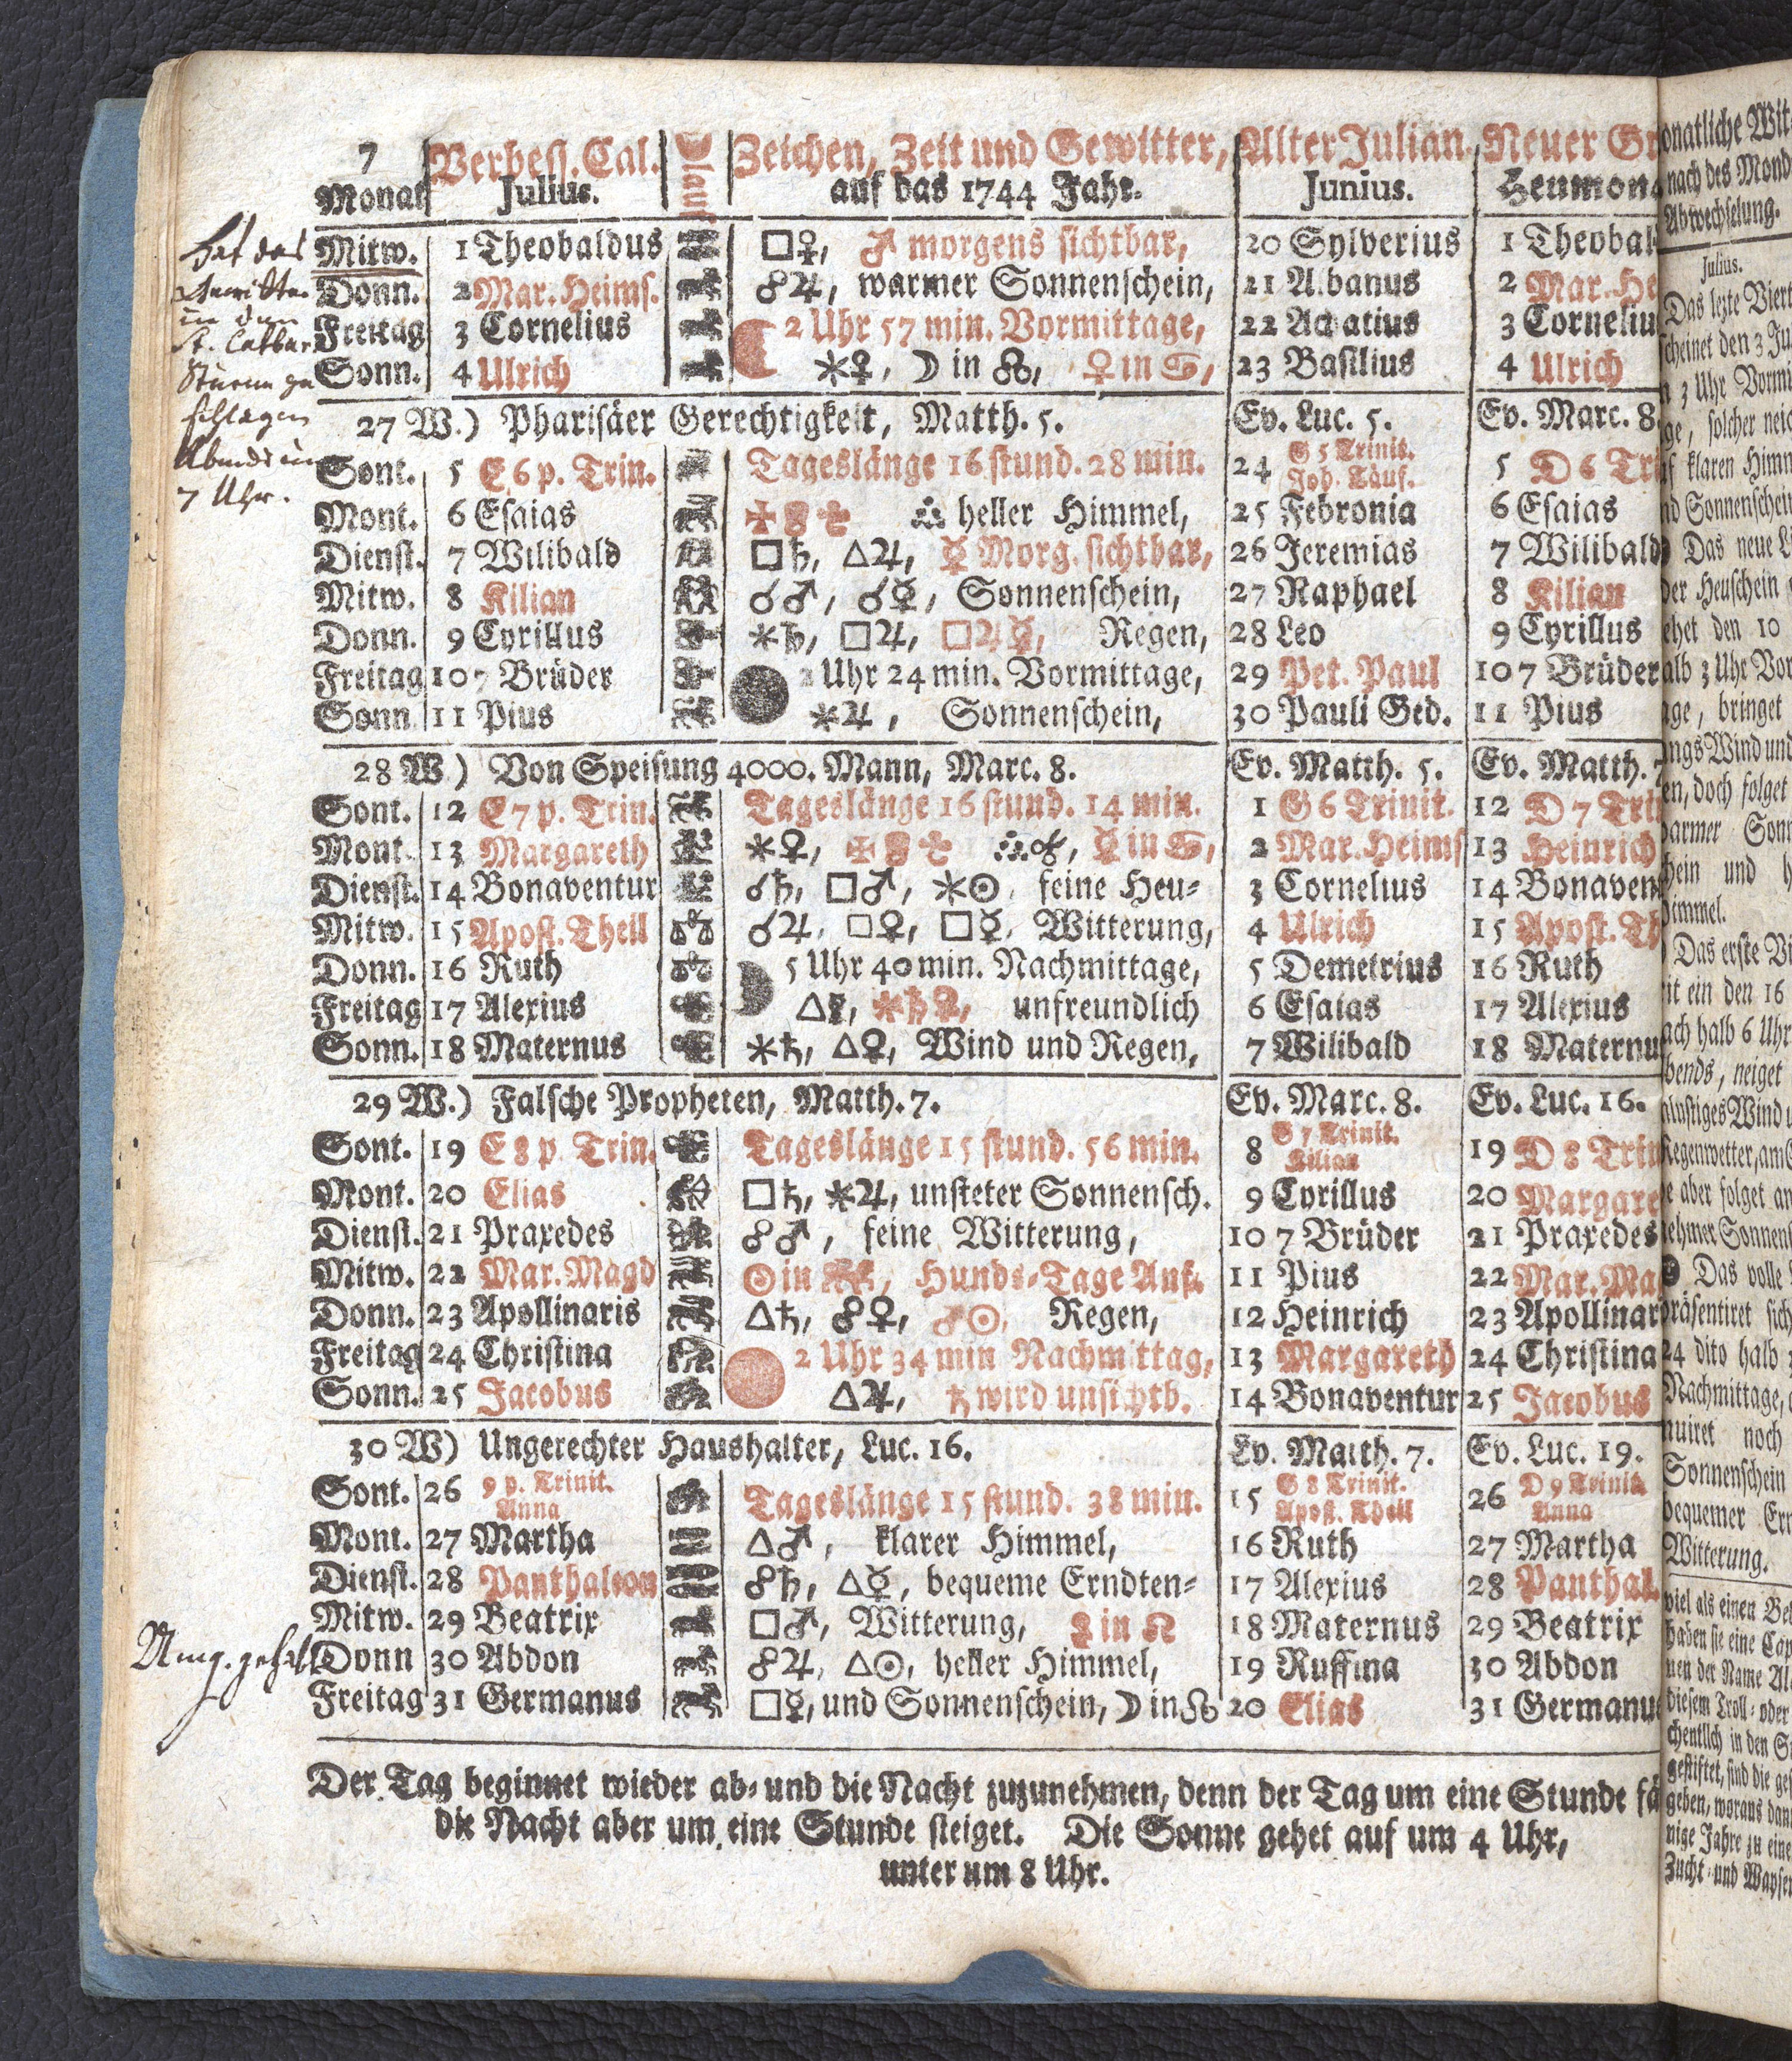 7 Verbess. Cal. lauf Zeichen, Zeit und Gewitter, Alter Julian. Neuer Gr
Monat Julius. auf das 1744 Jahr. Junius. Heumon
Mitw. 1 Theobaldus □♀, ♂ morgens sichtbar, 20 Sylverius 1 Theobal
Donn. 2 Mar. Heims. ☍♃, warmer Sonnenschein, 21 Albanus 2 Mar. He
Freitag 3 Cornelius ☾ 2 Uhr 57 min. Vormittage, 22 Achatius 3 Corneliu
Sonn. 4 Ulrich ⚹♀, ☽ in ☊, ♀ in ♋, 23 Basilius 4 Ulrich
27 W.) Pharisäer Gerechtigkeit, Matth. 5. Ev. Luc. 5. Ev. Marc. 8.
Sont. 5 E 6 p. Trin. Tageslänge 16 stund. 28 min. 24 G 5 Trinit. Joh. Täuf. 5 D 6 Tri
Mont. 6 Esaias heller Himmel, 25 Febronia 6 Esaias
Dienst. 7 Wilibald □♄, △♃, ☿ Morg. sichtbar, 26 Jeremias 7 Wilibald
Mitw. 8 Kilian ☌♂, ☌☿, Sonnenschein, 27 Raphael 8 Kilian
Donn. 9 Cyrillus ⚹♄, □♃, □♃☿, Regen, 28 Leo 9 Cyrillus
Freitag 10 7 Brüder ● Uhr 24 min. Vormittage, 29 Pet. Paul 10 7 Brüder
Sonn 11 Pius ⚹♃, Sonnenschein, 30 Pauli Ged. 11 Pius
28 W) Von Speisung 4000. Mann, Marc. 8. Ev. Matth. 5. Ev. Matth. 7
Sont. 12 E 7 p. Trin. Tageslänge 16 stund. 14 min. 1 G 6 Trinit. 12 D 7 Tri
Mont. 13 Margareth ⚹♀, ☿ in ♋, 2 Mar. Heims 13 Heinrich
Dienst. 14 Bonaventur ☌♄, □♂, ⚹☉, feine Heu= 3 Cornelius 14 Bonaven
Mitw. 15 Apost. Theil ☌♃, □♀, □☿, Witterung, 4 Ulrich 15 Apost. Th
Donn. 16 Ruth ☽ 5 Uhr 40 min. Nachmittage, 5 Demetrius 16 Ruth
Freitag 17 Alexius △☿, ⚹♄♀, unfreundlich 6 Esaias 17 Alexius
Sonn. 18 Maternus ⚹♄, △♀, Wind und Regen, 7 Wilibald 18 Maternu
29 W.) Falsche Propheten, Matth. 7. Ev. Marc. 8. Ev. Luc. 16.
Sont. 19 E 8 p. Trin. Tageslänge 15 stund. 56 min. 8 G 7 Trinit. Kilian 19 D 8 Trin
Mont. 20 Elias □♄, ⚹♃, unsteter Sonnensch. 9 Cyrillus 20 Margare
Dienst. 21 Praxedes ☍♂, feine Witterung, 10 7 Brüder 21 Praxedes
Mitw. 22 Mar. Magd ☉ in, Hunds=Tage Anf. 11 Pius 22 Mar. Ma
Donn. 23 Apollinaris △♄, ☍♀, ☍☉, Regen, 12 Heinrich 23 Apollinar
Freitag 24 Christina 2 Uhr 34 min Nachmittag, 13 Margareth 24 Christina
Sonn. 25 Jacobus △♃, ♄ wird unsichtb. 14 Bonaventur 25 Jacobus
30 W) Ungerechter Haushalter, Luc. 16. Ev. Matth. 7. Ev. Luc. 19.
Sont. 26 9 p. Trinit. Anna Tageslänge 15 stund. 38 min. 15 G 8 Trinit. Apost. Theil 26 D 9 Trinit. Anna
Mont. 27 Martha △♂, klarer Himmel, 16 Ruth 27 Martha
Dienst. 28 Panthaleon ☍♄, △☿, bequeme Erndten= 17 Alexius 28 Panthal
Mitw. 29 Beatrix □♂, Witterung, in ♌ 18 Maternus 29 Beatrix
Donn 30 Abdon ☍♃, △☉, heller Himmel, 19 Ruffina 30 Abdon
Freitag 31 Germanus □☿, und Sonnenschein, ☽ in ☊ 20 Elias 31 Germanu
Der Tag beginnet wieder ab= und die Nacht zuzunehmen, denn der Tag um eine Stunde fä
die Nacht aber um eine Stunde steiget. Die Sonne gehet auf um 4 Uhr,
unter um 8 Uhr.
Hat das
in den
St. Cathar
Sturm ge
schlagen
Abends um
7 Uhr.
onatliche Wit
nach des Mond
Abwechselung.
Julius.
Das lezte Viert
scheinet den 3 Ju
3 Uhr Vormi
ge, solcher neig
klaren Himm
nd Sonnenschein
Das neue L
der Heuschein
ehet den 10
alb 3 Uhr Vor
age, bringet
ngs Wind und
en, doch folget
armer Sonn
hein und h
immel.
Das erste Vi
it ein den 16
ach halb 6 Uhr
bends, neiget
Regenwetter, am
e aber folget an
ehmer Sonnens
Das volle
präsentiret sich
24 dito halb
Nachmittage,
nuiret noch
Sonnenschein
bequemer Ern
Witterung.
viel als einen Be
haben sie eine Cap
nen der Name Al
diesem Troll= oder
chentlich in den S
gestiftet, sind die ges
geben, woraus dan
nige Jahre zu eine
Zucht= und Wayse